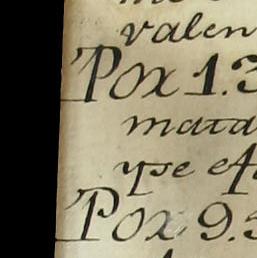 valen
Pox 1.3
mata
yse ef
Pox 9.5